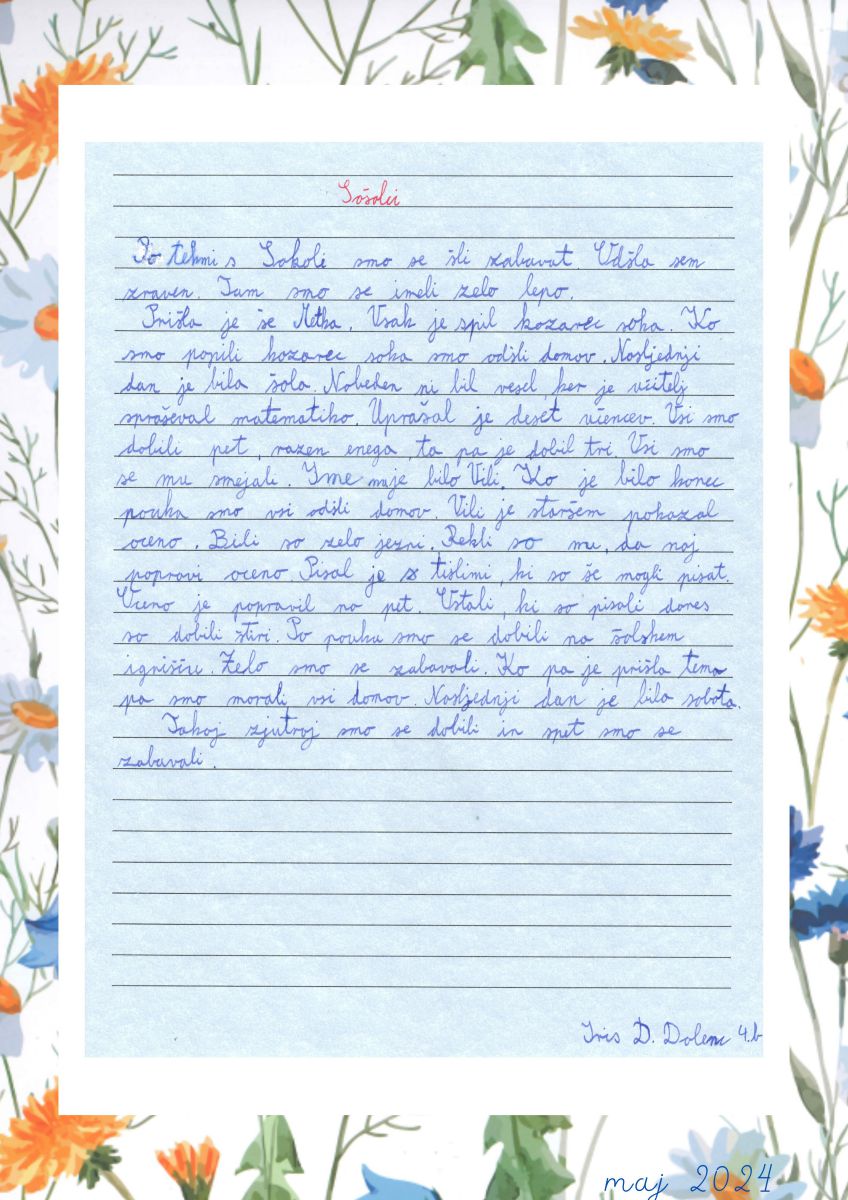 Sošolci
Po tekmi s Sokoli smo se šli zabavat. Odšla sem
zraven. Tam smo se imeli zelo lepo.
Prišla je še Metka. Vsak je spil kozarec soka. Ko
smo popili kozarec soka smo odšli domov. Nasljednji
dan je bila šola. Nobeden ni bil vesel, ker je učitelj
spraševal matematiko. Uprašal je deset učencev. Vsi smo
dobili pet, razen enega, ta pa je dobil tri. Vsi smo
se mu smejali. Ime mu je bilo Vili. Ko je bilo konec
pouka smo vsi odšli domov. Vili je staršem pokazal
oceno. Bili so zelo jezni. Rekli so mu, da naj
popravi oceno. Pisal je s tistimi, ki so še mogli pisat.
Oceno je popravil na pet. Ostali, ki so pisali danes
so dobili štiri. Po pouku smo se dobili na šolskem
igrišču. Zelo smo se zabavali. Ko pa je prišla tema
pa smo morali vsi domov. Nasljednji dan je bila sobota.
Takoj zjutraj smo se dobili in spet smo se
zabavali.
Iris D. Dolenc 4.b
maj 2024